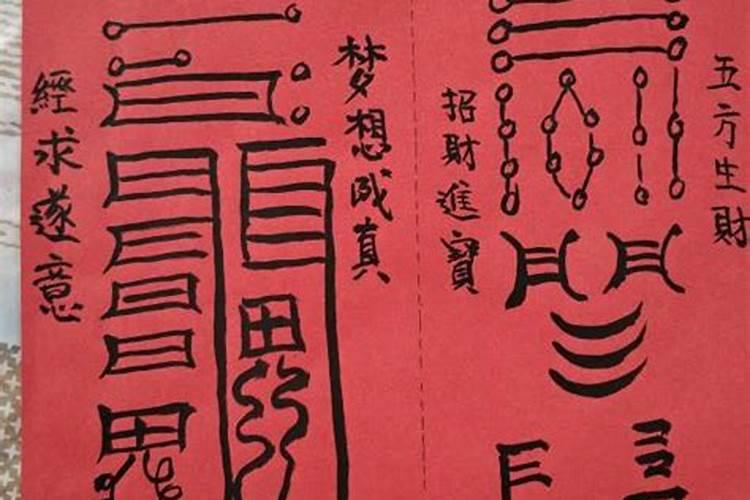 五方生財
招財進寶
梦想成真
經求遂意